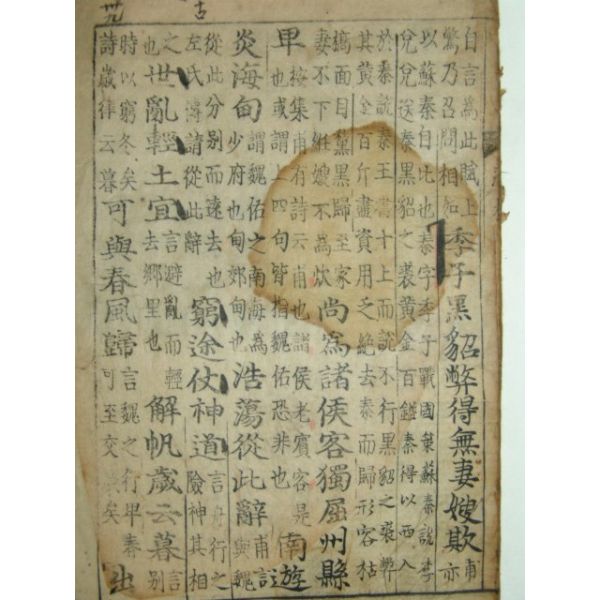 自言為此賦上驚乃召問相如季子黑貂弊得無妻嫂欺甫亦
以蘇秦自比也秦字季子戰國策蘇秦說李兌兌送秦黑貂之裘黃金百鎰秦得以西入
於秦說秦王書十上而說不行黑貂之裘弊其黃金百斤盡資用乏絕去秦而歸形容枯
槁面目黧黑歸至家妻不下絍嫂不為炊尚為諸侯客獨屈州縣
卑按集甫有詩云甫也諸侯老賓客是也或謂上四句皆指魏佑恐非也南遊
炎海甸謂魏佑之南海為少府也甸郊甸也浩蕩從此辭甫言與魏
從此分別而遠去也左氏傳請從此辭窮途仗神道言舟行之險神其相
之也世亂土宜言避亂而輕去鄉里也解帆歲云暮言別
時以窮冬矣詩歲律云暮可與春風歸言魏之行早春可至交矣出